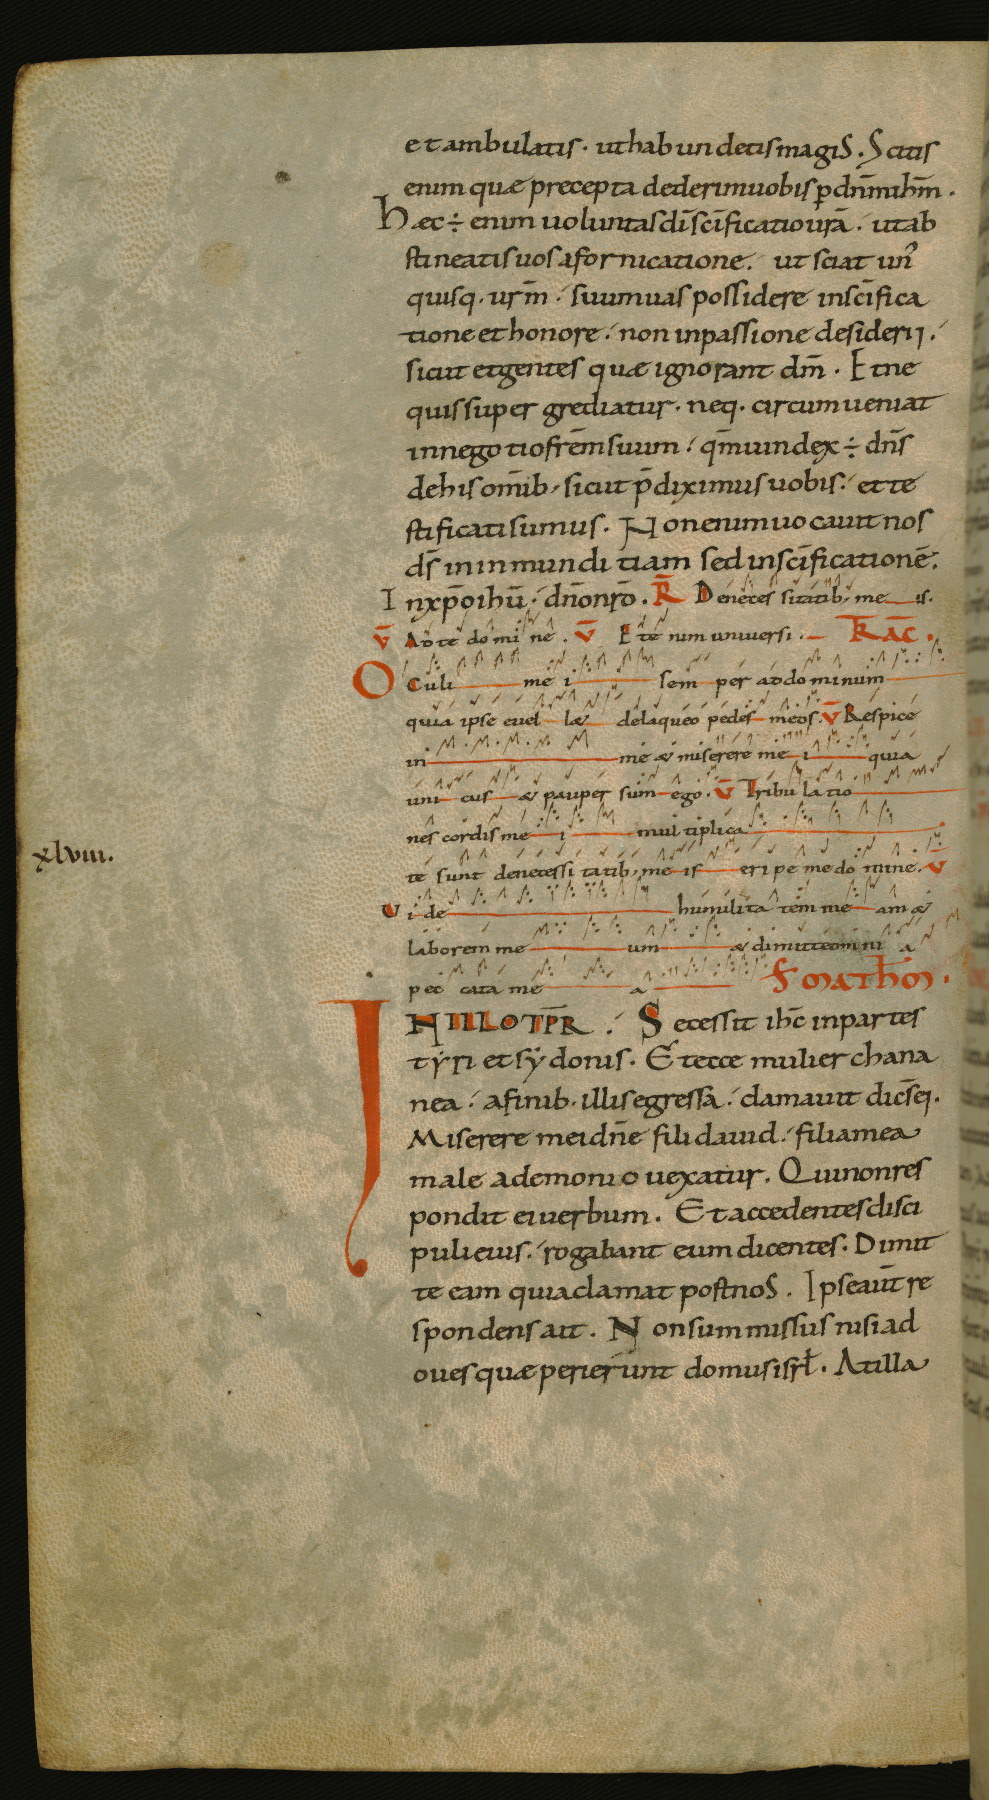 et ambulatis · ut habundetis magis. Scitis
enim quæ precepta dederim uobis p̱ dn̄m ih̄m ·
Hæc ÷ enim uoluntas dī sc̄ificatio ur̄a · ut ab
stineatis uos a fornicatione. ut sciat un᷒
quisq· ur̄m · suum uas possidere in sc̄ifica
tione et honore · non in passione desiderij ·
sicut et gentes quæ ignorant dm̄ · Et ne
quis supergrediatur · neq· circumueniat
in negotio frēm suum · qm̄ uindex ÷ dn̄s
de his om̄ib· sicut p̄diximus uobis · et te
stificati sumus. Non enim uocauit nos
ds̄ in inmunditiam sed in sc̄ificationē.
In xp̄o ihū · dn̄o nr̄o. R̄ De necessitatib· me is.
V̄ Ad te domine. V̄ Etenim uniuersi. TRAC̄.
Oculi mei semper ad dominum
quia ipse euellæ de laqueo pedes meos. V̄ Respice
in me & miserere mei quia
unicus & pauper sum ego. V̄ Tribulatio
nes cordis mei multiplica
te sunt de necessitatib· meis eripe me domine. V̄
Uide humilitatem meam &
laborem meum & dimitte omnia
peccata mea S̄ MATHM̄.
xlviii.
IN ILLO TP̄R. Secessit ih̄c in partes
tyri et sydonis. Et ecce mulier chana
nea · a finib· illis egressa · clamauit dicēs ei.
Miserere mei dn̄e fili dauid. filia mea
male a demonio uexatur. Qui non res
pondit ei uerbum. Et accedentes disci
puli eius. rogabant eum dicentes. Dimit
te eam quia clamat post nos. Ipse aūt re
spondens ait. Non sum missus nisi ad
oues quæ perierunt domus isrł. At illa